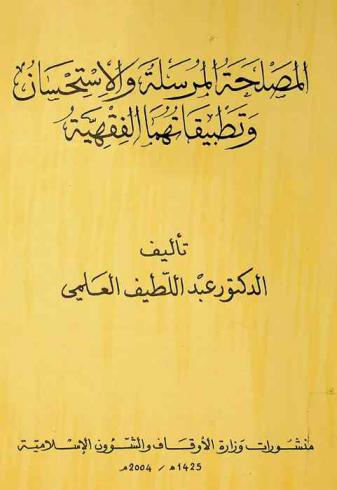 المَصْلَحَةُ المُرْسَلَةُ وَالاسْتِحْسَانُ
وَتَطْبِيقَاتُهُمَا الفِقْهِيَّةُ
تأليف
الدكتور عبْد اللطيف العلمي
منشورات وزارة الأوقاف والشؤون الإسلامية
1425هـ / 2004م